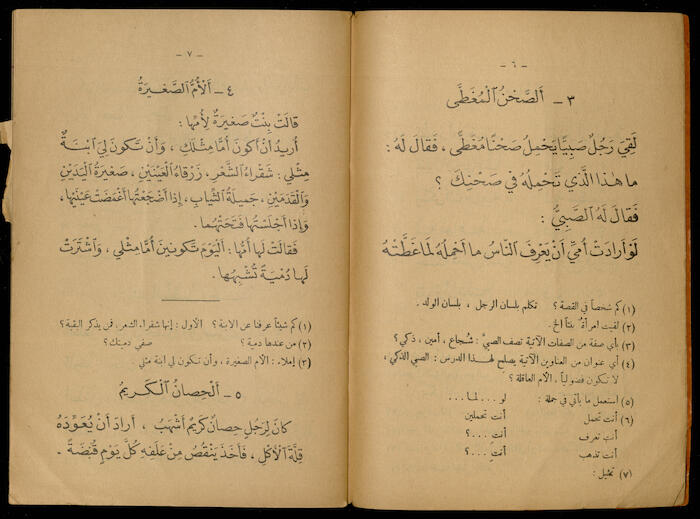 - ٦ -
٣ - اَلصَّحْنُ الْمُغَطَّى
لَقِيَ رَجُلٌ صَبِيًّا يَحْمِلُ صَحْنًا مُغَطًّى ، فَقَالَ لَهُ :
ما هٰذا الَّذي تَحْمِلُهُ في صَحْنِكَ ؟
فَقالَ لَهُ الصَّبِيُّ :
لَوْ أَرادَتْ أُمِّي أَنْ يَعْرِفَ النّاسُ ما أَحْمِلُهُ لَما غَطَّتْهُ
(١) كم شخصاً في القصة ؟ تكلم بلسان الرجل ، بلسان الولد .
(٢) لقيت امرأة بنتاً الخ .
(٣) بأي صفة من الصفات الآتية تصف الصبيّ : شُجاع ، أمين ، ذكي ؟
(٤) أي عنوان من العناوين الآتية يصلح لهذا الدرس : الصبي الذكي ،
لا تكون فضولياً ، الأم العاقلة ؟
(٥) استعمل ما يأتي في جملة : لو ... لما ...
(٦) أنت تحمل أنت تحملين
أنت تعرف أنت ... ؟
أنت تذهب أنتِ ... ؟
(٧) تمثيل :
- ٧ -
٤ - اَلْأُمُّ الصَّغيرَةُ
قالَتْ بِنْتٌ صَغيرَةٌ لِأُمِّها :
أُريدُ أَنْ أَكونَ أُمًّا مِثْلَكِ ، وَأَنْ تَكونَ لِيَ ابْنَةٌ
مِثْلي : شَقْراءُ الشَّعْرِ ، زَرْقاءُ الْعَيْنَيْنِ ، صَغيرَةُ الْيَدَيْنِ
وَالْقَدَمَيْنِ ، جَميلَةُ الثِّيابِ ، إِذا أَضْجَعْتُها أَغْمَضَتْ عَيْنَيْها ،
وَإِذا أَجْلَسْتُها فَتَحَتْهُما .
فَقالَتْ لَها أُمُّها : اَلْيَوْمَ تَكونينَ أُمًّا مِثْلي ، وَاشْتَرَتْ
لَها دُمْيَةً تُشْبِهُها .
(١) كم شيئاً عرفنا عن الابنة ؟ الأول : إنها شقراء الشعر ، فمن يذكر البقية ؟
(٢) من عندها دمية ؟ صفي دميتك ؟
(٣) إملاء : الأم الصغيرة ، وأن تكون لي ابنة مثلي .
٥ - اَلْحِصانُ الْكَريمُ
كانَ لِرَجُلٍ حِصانٌ كَريمٌ أَشْهَبُ ، أَرادَ أَنْ يُعَوِّدَهُ
قِلَّةَ الْأَكْلِ ، فَأَخَذَ يَنْقُصُ مِنْ عَلَفِهِ كُلَّ يَوْمٍ قُبْضَةً .